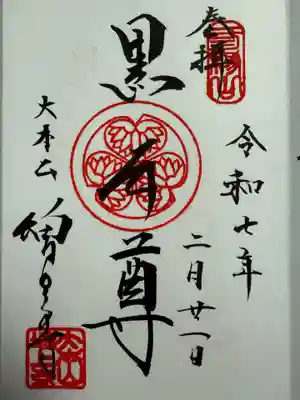 奉拝
令和七年
二月廿一日
黒本尊
大本山
増上寺